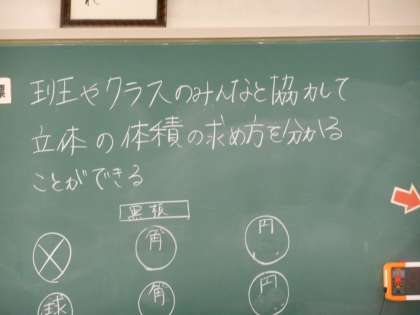 標
班やクラスのみんなと協力して
立体の体積の求め方を分かる
ことができる
黒板
角
円
球
角
円